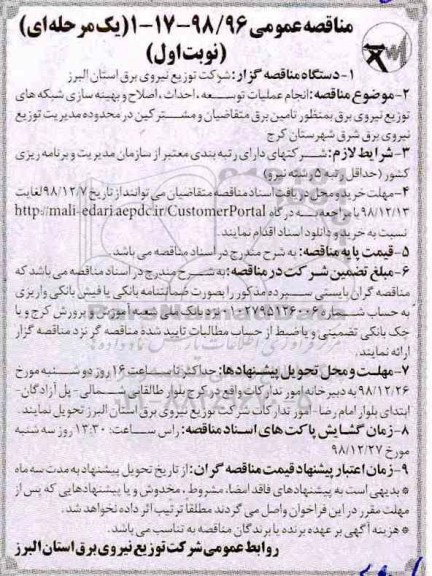 مناقصه عمومی ۹۸/۹۶-۱۷-۱ (یک مرحله ای)
(نوبت اول)
۱-دستگاه مناقصه گزار: شرکت توزیع نیروی برق استان البرز
۲-موضوع مناقصه: انجام عملیات توسعه، احداث، اصلاح و بهینه سازی شبکه های
توزیع نیروی برق بمنظور تامین برق متقاضیان و مشترکین در محدوده مدیریت توزیع
نیروی برق شرق شهرستان کرج
۳-شرایط لازم: شرکتهای دارای رتبه بندی معتبر از سازمان مدیریت و برنامه ریزی
کشور (حداقل رتبه ۵ رشته نیرو)
۴-مهلت خرید و محل دریافت اسناد مناقصه متقاضیان می توانند از تاریخ ۹۸/۱۲/۷ لغایت
۹۸/۱۲/۱۳ با مراجعه به درگاه http://mali-edari.aepdc.ir/CustomerPortal
نسبت به خرید و دانلود اسناد اقدام نمایند.
۵-قیمت پایه مناقصه: به شرح مندرج در اسناد مناقصه می باشد.
۶-مبلغ تضمین شرکت در مناقصه: به شرح مندرج در اسناد مناقصه می باشد که
مناقصه گران بایستی سپرده مذکور را بصورت ضمانتنامه بانکی یا فیش بانکی واریزی
به حساب شماره نزد بانک ملی شعبه آموزش و پرورش کرج و یا
چک بانکی تضمینی و یا ضبط از حساب مطالبات تایید شده مناقصه گر نزد مناقصه گزار
ارائه نمایند.
۷-مهلت و محل تحویل پیشنهادها: حداکثر تا ساعت ۱۶ روز دوشنبه مورخ
۹۸/۱۲/۲۶ به دبیرخانه امور تدارکات واقع در کرج بلوار طالقانی شمالی - پل آزادگان-
ابتدای بلوار امام رضا - امور تدارکات شرکت توزیع نیروی برق استان البرز تحویل نمایند.
۸-زمان گشایش پاکت های اسناد مناقصه: راس ساعت: ۱۳:۳۰ روز سه شنبه
مورخ ۹۸/۱۲/۲۷
۹-زمان اعتبار پیشنهاد قیمت مناقصه گران: از تاریخ تحویل پیشنهاد به مدت سه ماه
* بدیهی است به پیشنهادهای فاقد امضا، مشروط، مخدوش و یا پیشنهادهایی که پس از
مهلت مقرر در این فراخوان واصل می گردند مطلقا ترتیب اثر داده نخواهد شد.
* هزینه آگهی بر عهده برنده یا برندگان مناقصه به تناسب می باشد.
روابط عمومی شرکت توزیع نیروی برق استان البرز